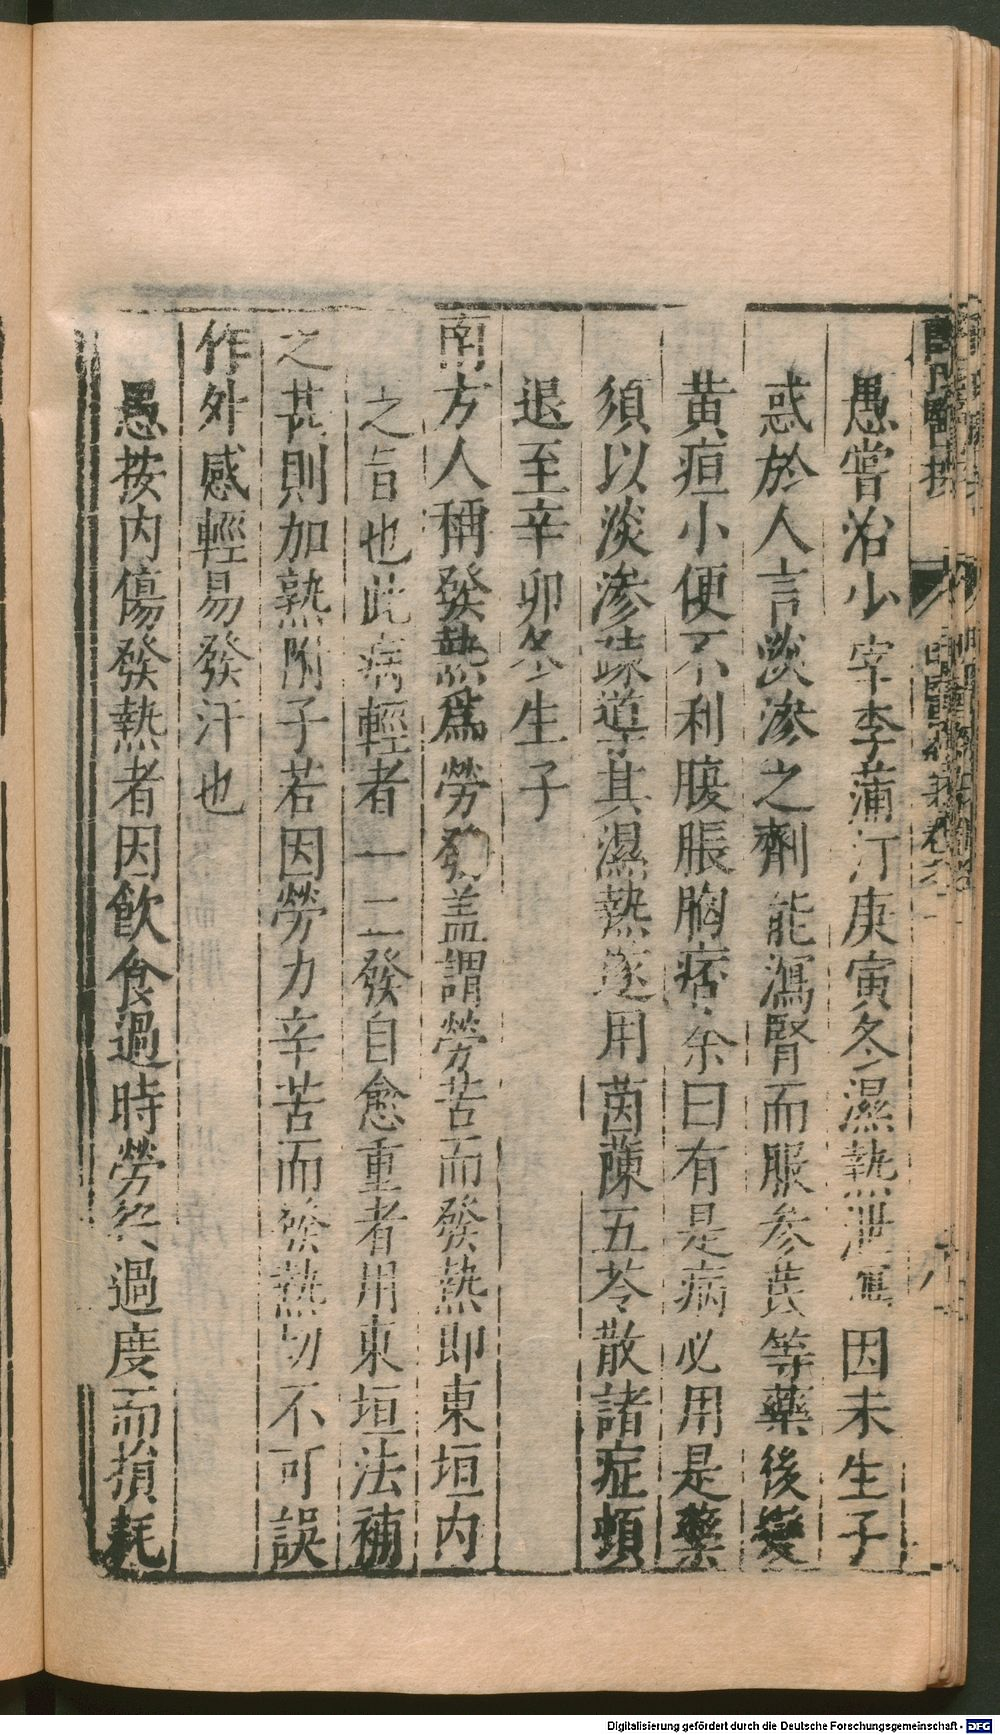 愚嘗治少宰李蒲汀庚寅冬濕熱泄瀉因未生子
惑於人言淡滲之劑能瀉腎而服參芪等藥後變
黄疸小便不利腹脹胸痞余曰有是病必用是藥
須以淡滲疎導其濕熱遂用茵蔯五苓散諸症頓
退至辛卯冬生子
南方人稱發熱爲勞發盖謂勞苦而發熱即東垣内
之旨也此病輕者一二發自愈重者用東垣法補
之甚則加熟附子若因勞力辛苦而發熱切不可誤
作外感輕易發汗也
愚按内傷發熱者因飲食過時勞役過度而損耗
Digitalisierung gefördert durch die Deutsche Forschungsgemeinschaft - DFG